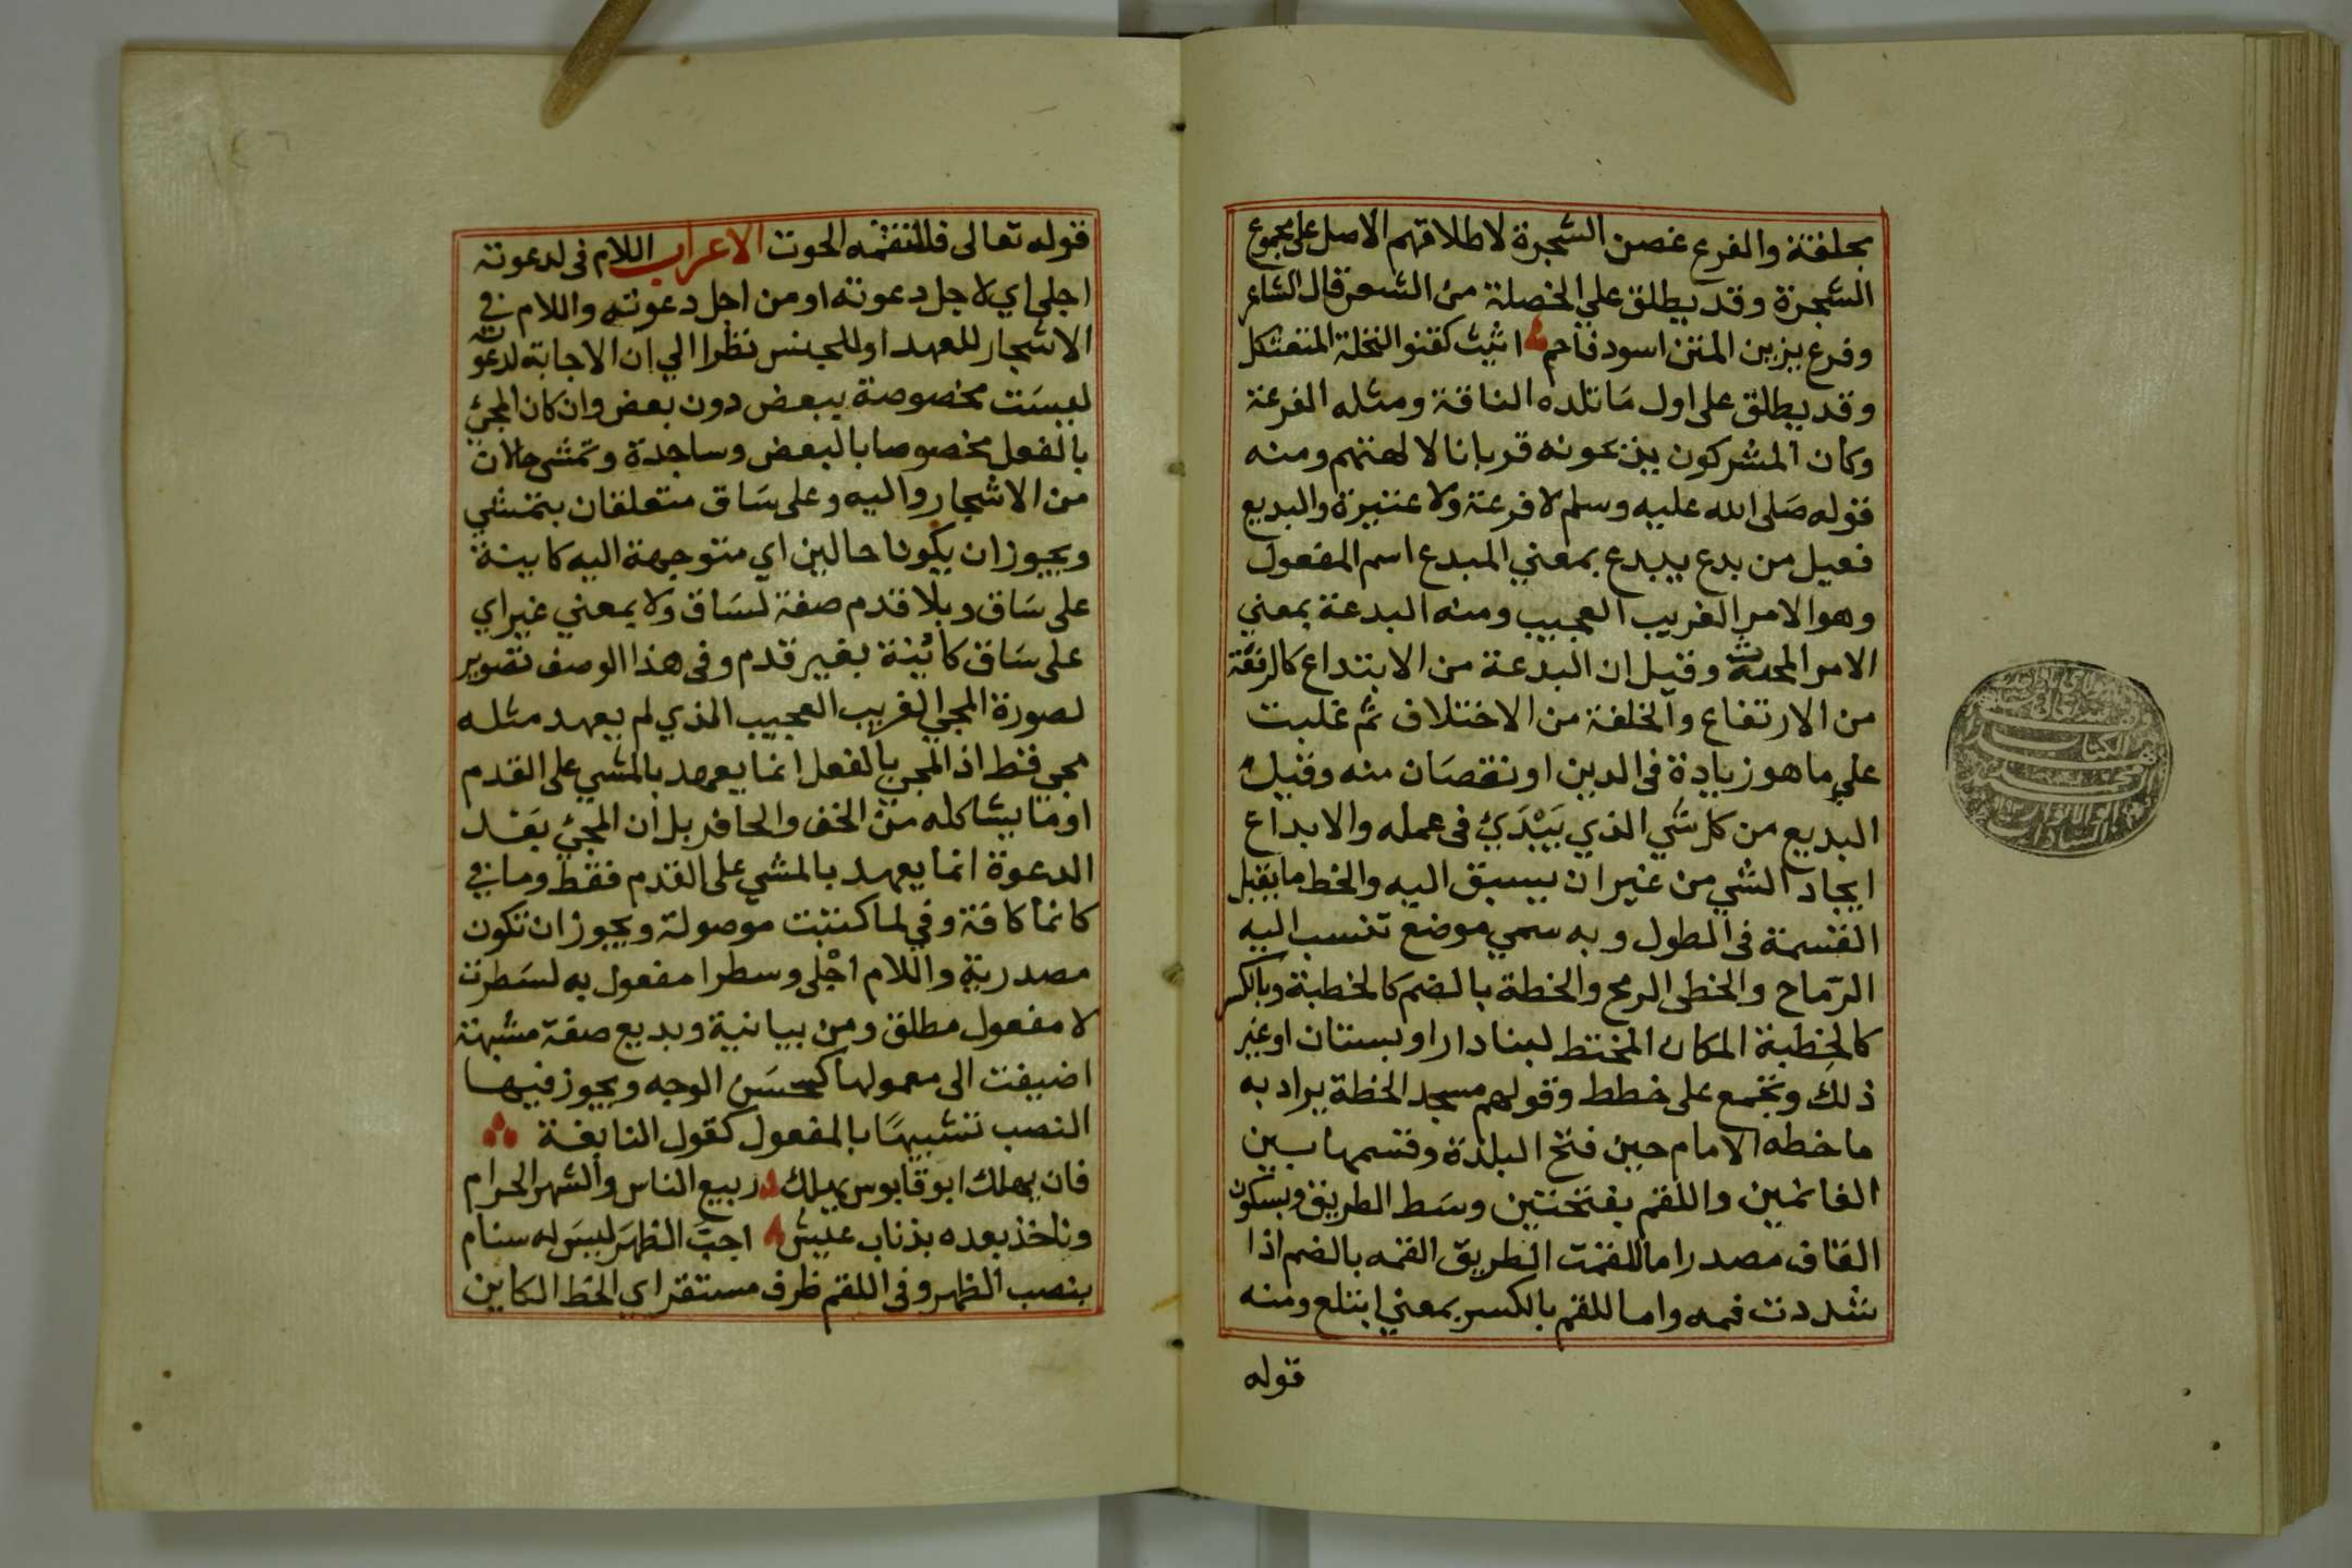 بحلفتة والفرع غصن الشجرة لاطلاقهم الاصل على مجموع
الشجرة وقد يطلق علي الخصلة من الشعر قال الشاعر
وفرع يزين المتن اسود فاحم اثيث كقنو النخلة المتعثكل
وقد يطلق على اول ما تلده الناقة ومثله الفرعة
وكان المشركون يذعونه قربانا لالهتهم ومنه
قوله صلى الله عليه وسلم لا فرعة ولا عتيرة والبديع
فعيل من بدع يبدع بمعني المبدع اسم المفعول
وهو الامر الغريب العجيب ومنه البدعة بمعني
الامر المحدث وقيل ان البدعة من الابتداع كالرفعة
من الارتفاع والخلفة من الاختلاف ثم غلبت
علي ما هو زيادة في الدين او نقصان منه وقيل
البديع من كل شي الذي يبدئ في عمله والابداع
ايجاد الشي من غير ان يسبق اليه والخط ما يقبل
القسمة في الطول وبه سمي موضع تنسب اليه
الرماح والخطى الرمح والخطة بالضم كالخطبة وبالكسر
كالخطبة المكان المختط لبنا دار او بستان او غير
ذلك وتجمع على خطط وقولهم مسجد الخطة يراد به
ما خطه الامام حين فتح البلدة وقسمها بين
الغانمين واللقم بفتحتين وسط الطريق وبسكون
القاف مصدر اما للقمت الطريق القمه بالضم اذا
شددت فمه واما للقم بالكسر بمعني ابتلع ومنه
قوله
قوله تعالى فالتقمه الحوت الاعراب اللام في لدعوته
اجلي اي لاجل دعوته او من اجل دعوته واللام في
الاشجار للعهد او للجنس نظرا الي ان الاجابة لدعوته
ليست مخصوصة ببعض دون بعض وان كان المجئ
بالفعل مخصوصا بالبعض وساجدة وتمشى حالان
من الاشجار واليه وعلى ساق متعلقان بتمشي
ويجوز ان يكونا حالين اي متوجهة اليه كاينة
على ساق وبلا قدم صفة لساق ولا بمعني غير اي
على ساق كائنة بغير قدم وفي هذا الوصف تصوير
لصورة المجي الغريب العجيب الذي لم يعهد مثله
مجي قط اذ المجي بالفعل انما يعهد بالمشي على القدم
او ما يشاكله من الخف والحافر بل ان المجئ بعد
الدعوة انما يعهد بالمشي على القدم فقط وما في
كانما كافة وفي لما كتبت موصولة ويجوز ان تكون
مصدرية واللام اجلى وسطرا مفعول به لسطرت
لا مفعول مطلق ومن بيانية وبديع صفة مشبهة
اضيفت الى معمولها كحسن الوجه ويجوز فيها
النصب تشبيها بالمفعول كقول النابغة
فان يهلك ابو قابوس يهلك ربيع الناس والشهر الحرام
وناخذ بعده بذناب عيش اجب الظهر ليس له سنام
بنصب الظهر وفي اللقم ظرف مستقر اي الخط الكاين